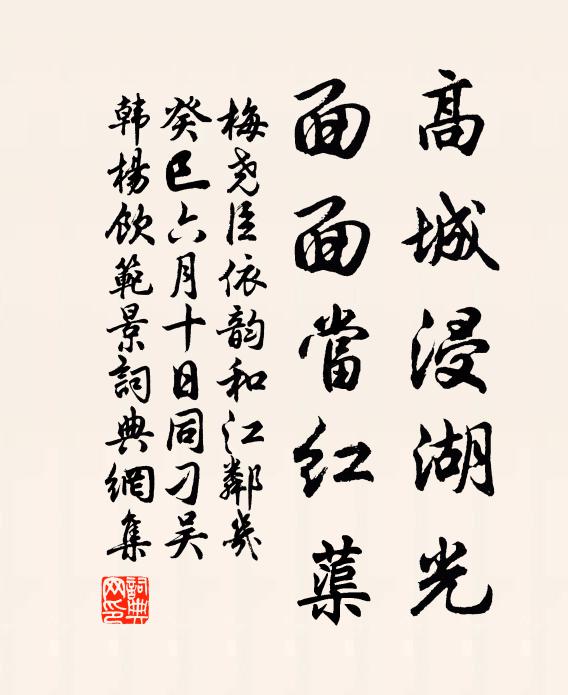 高城浸湖光
面面當红蕖
梅尧臣依韵和江鄰幾
癸巳六月十日同刁吴
韩楊飲範景詞典網集
詞典网印